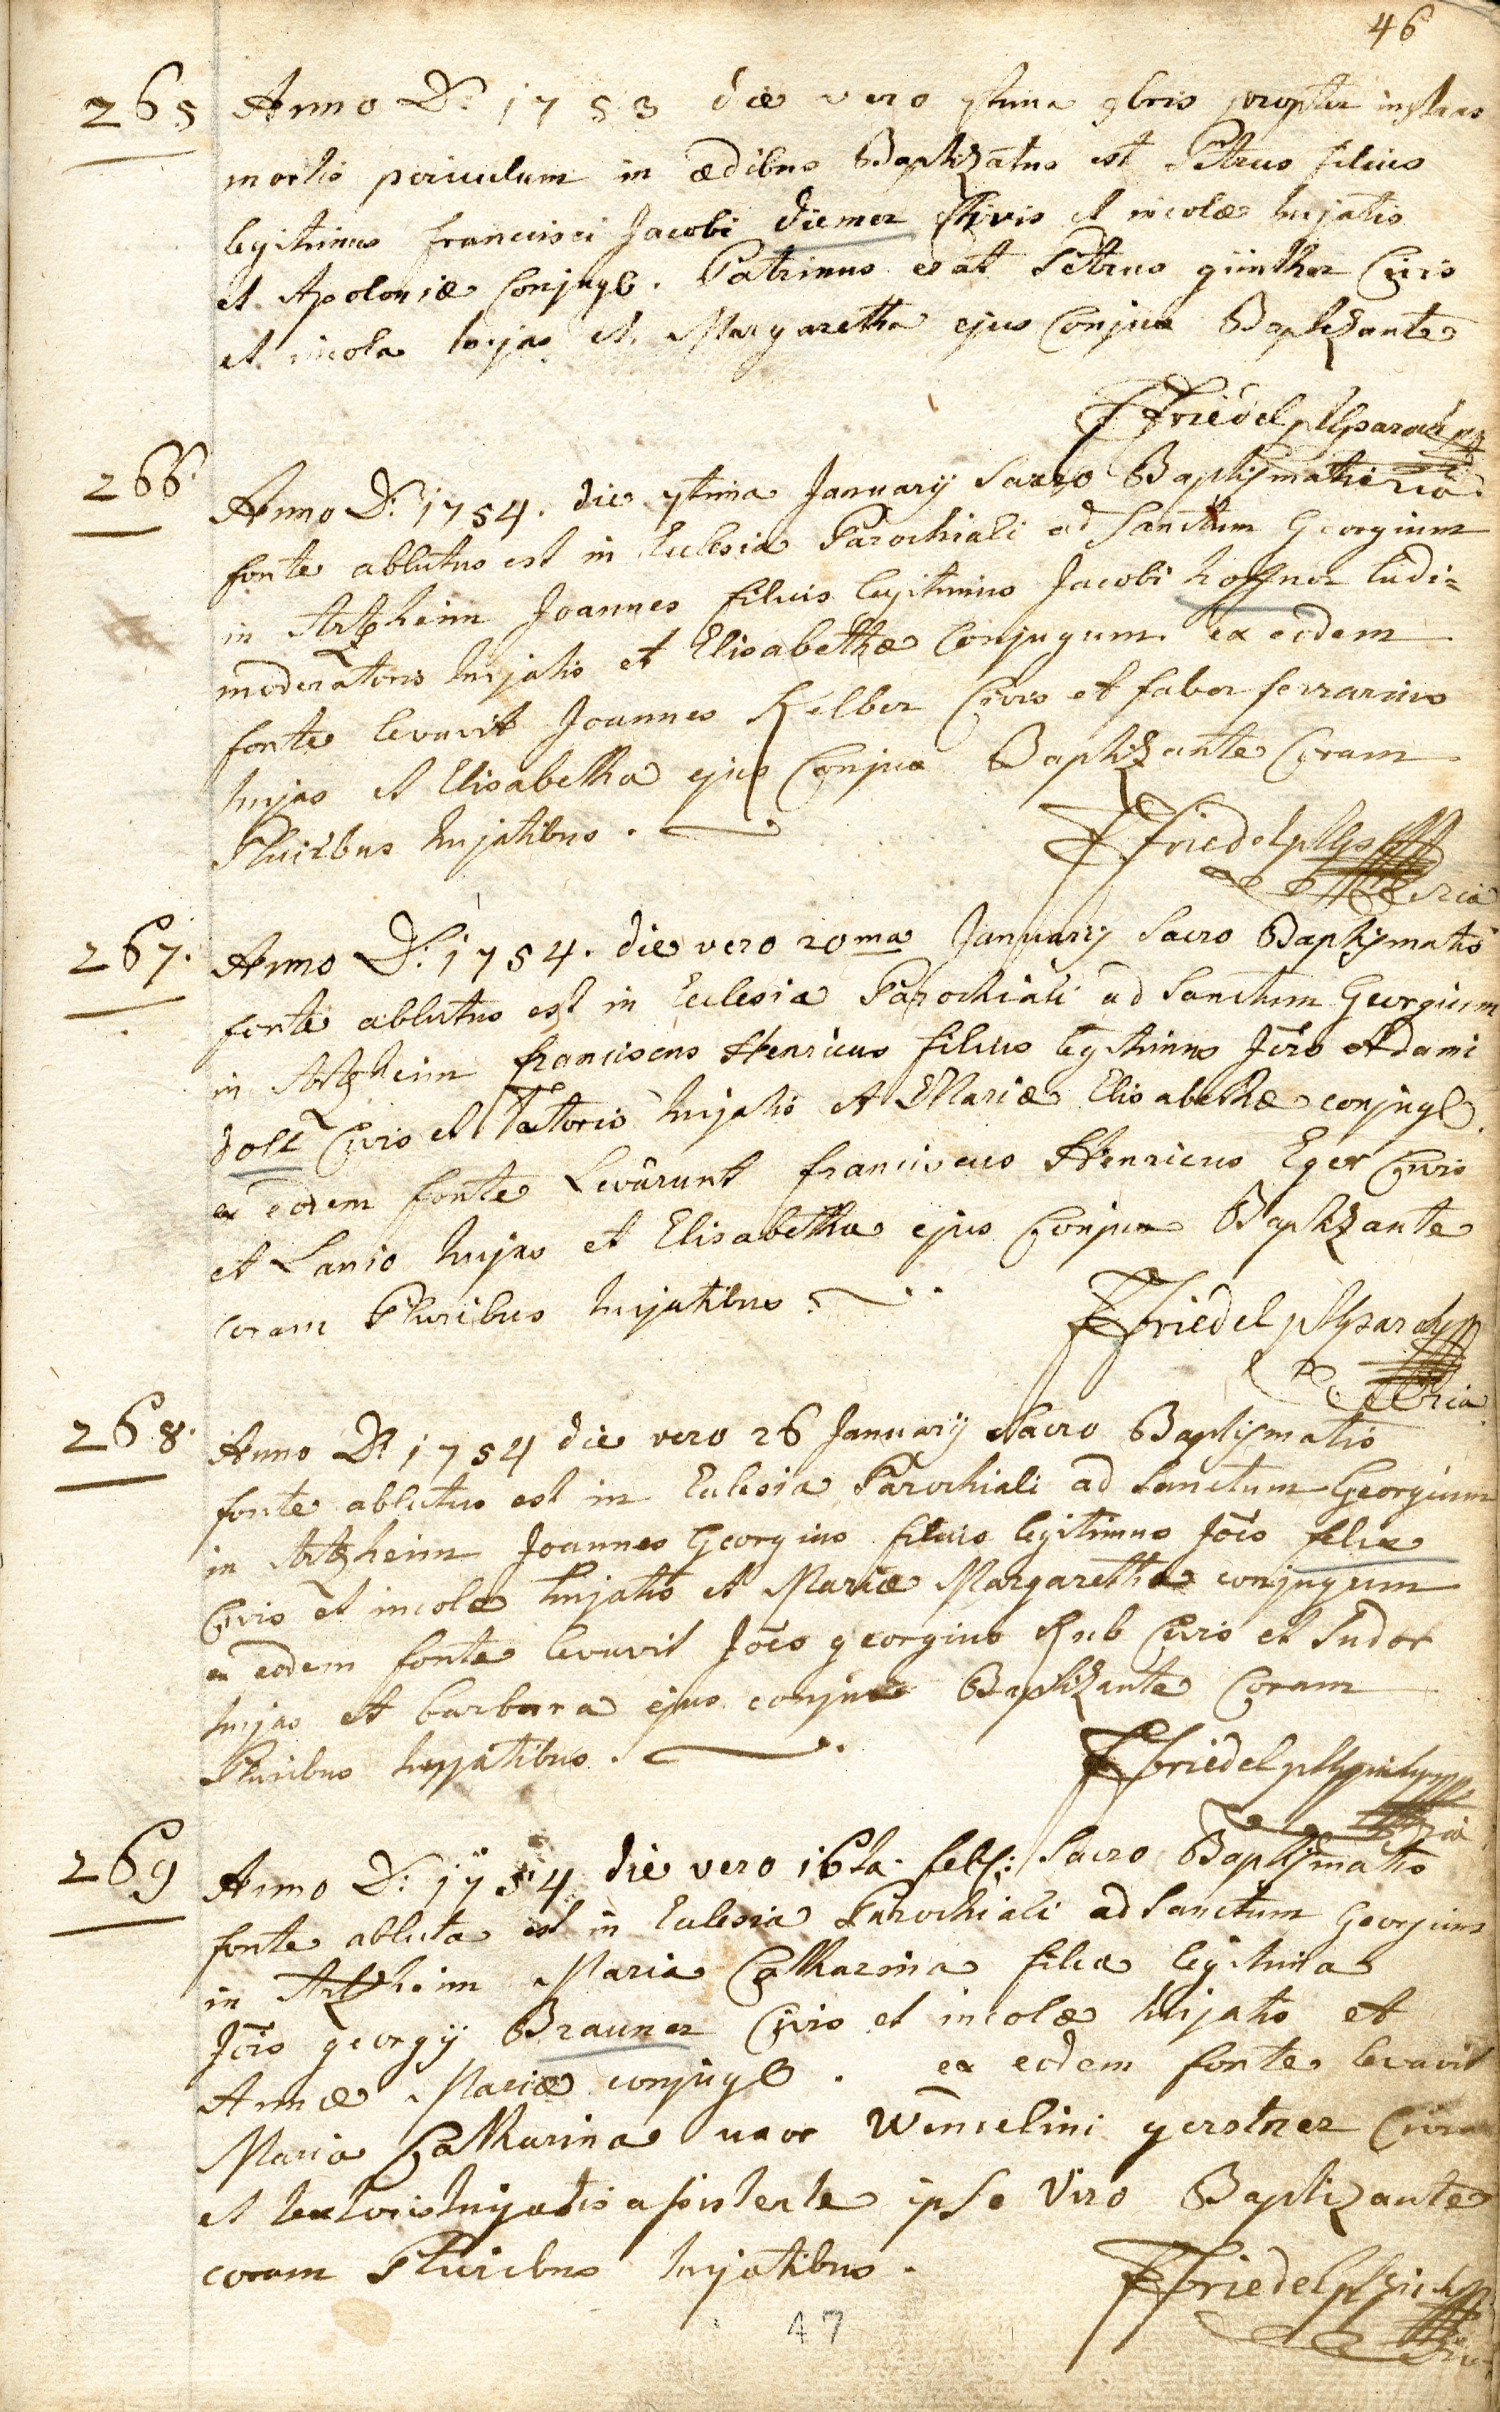 46
265 Anno D: 1753 die vero 7tima 9bris propter instans
mortis periculum in ædibus Baptizatus est Petrus filius
legitimus francisci Jacobi Diemer Civis et incolæ hujatis
et Apoloniæ Conjugb. Patrinus erat Petrus günther Civis
et incola hujas et Margaretha ejus Conjux Baptizante
FFriedel
266. Anno D: 1754. die 7tima January Sacro Baptismatis
fonte ablutus est in Ecclesia Parochiali ad Sanctum Georgium
in Artzheim Joannes filius legitimus Jacobi hoffner ludi=
moderatoris hujatis et Elisabethæ Conjugum. ex eodem
fonte levavit Joannes Kelber Civis et faber ferrarius
hujas et Elisabetha ejus Conjux Baptizante Coram
Pluribus hujatibus.
FFriedel
267. Anno D: 1754. die vero 20ma January Sacro Baptismatis
fonte ablutus est in Ecclesia Parochiali ad Sanctum Georgium
in Artzheim franciscus Henricus filius legitimus Jōis Adami
Civis et hujatis et Mariæ Elisabethæ conjugb.
ex eodem fonte Levârunt franciscus Henricus Eger Civis
et Lanio hujas et Elisabetha ejus Conjux Baptizante
coram Pluribus hujatibus.
FFriedel
268. Anno D: 1754 die vero 26 January Sacro Baptismatis
fonte ablutus est in Eclesia Parochiali ad Sanctum Georgium
in Artzheim Joannes Georgius filius legitimus Jōis felix
Civis et incolæ hujatis et Mariæ Margarethæ conjugum
ex eodem fonte levavit Jōes georgius Rub Civis et Sudor
hujas et barbara ejus conjux Baptizante Coram
Pluribus hujatibus.
FFriedel
269 Anno D: 1754 die vero 16ta. feb: Sacro Baptismatis
fonte abluta est in Eclesia Parochiali ad Sanctum Georgium
in Artzheim Maria Catharina filia legitima
Jōis georgy Brauner Civis et incolæ hujatis et
Annæ Mariæ conjugb. ex eodem fonte levavit
Maria Catharina uxor Wencelini gerstner Civis
et textoris hujatis assistente ipso Viro Baptizante
coram Pluribus hujatibus.
FFriedel
47